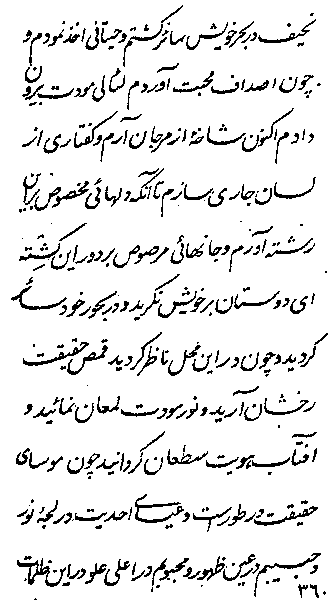 نحیف در بحر خویش سائر کشتم و حیتانی اخذ نمودم و
چون اصداف محبت آوردم لئالی مودت بیرون
دادم اکنون شاخهٔ از مرجان آرم و کفتاری از
لسان جاری سازم تا آنکه دلهائی مخصوص براین
رشته آرم و جانهائی مرصوص بر دور این کشته
ای دوستان بر خویش نکرید و در بحور خود سائر
کردید و چون در این محل ناظر کردید قمص حقیقت
رخشان آرید و نور مودت لمعان نمائید و
آفتاب هویت سطعان کردانید چون موسای
حقیقت در طور است و عیسای احدیت در لجهٔ نور
و حبیبم در عین ظهور و محبوبم در اعلی علو در این ظلمات
۳۶۰